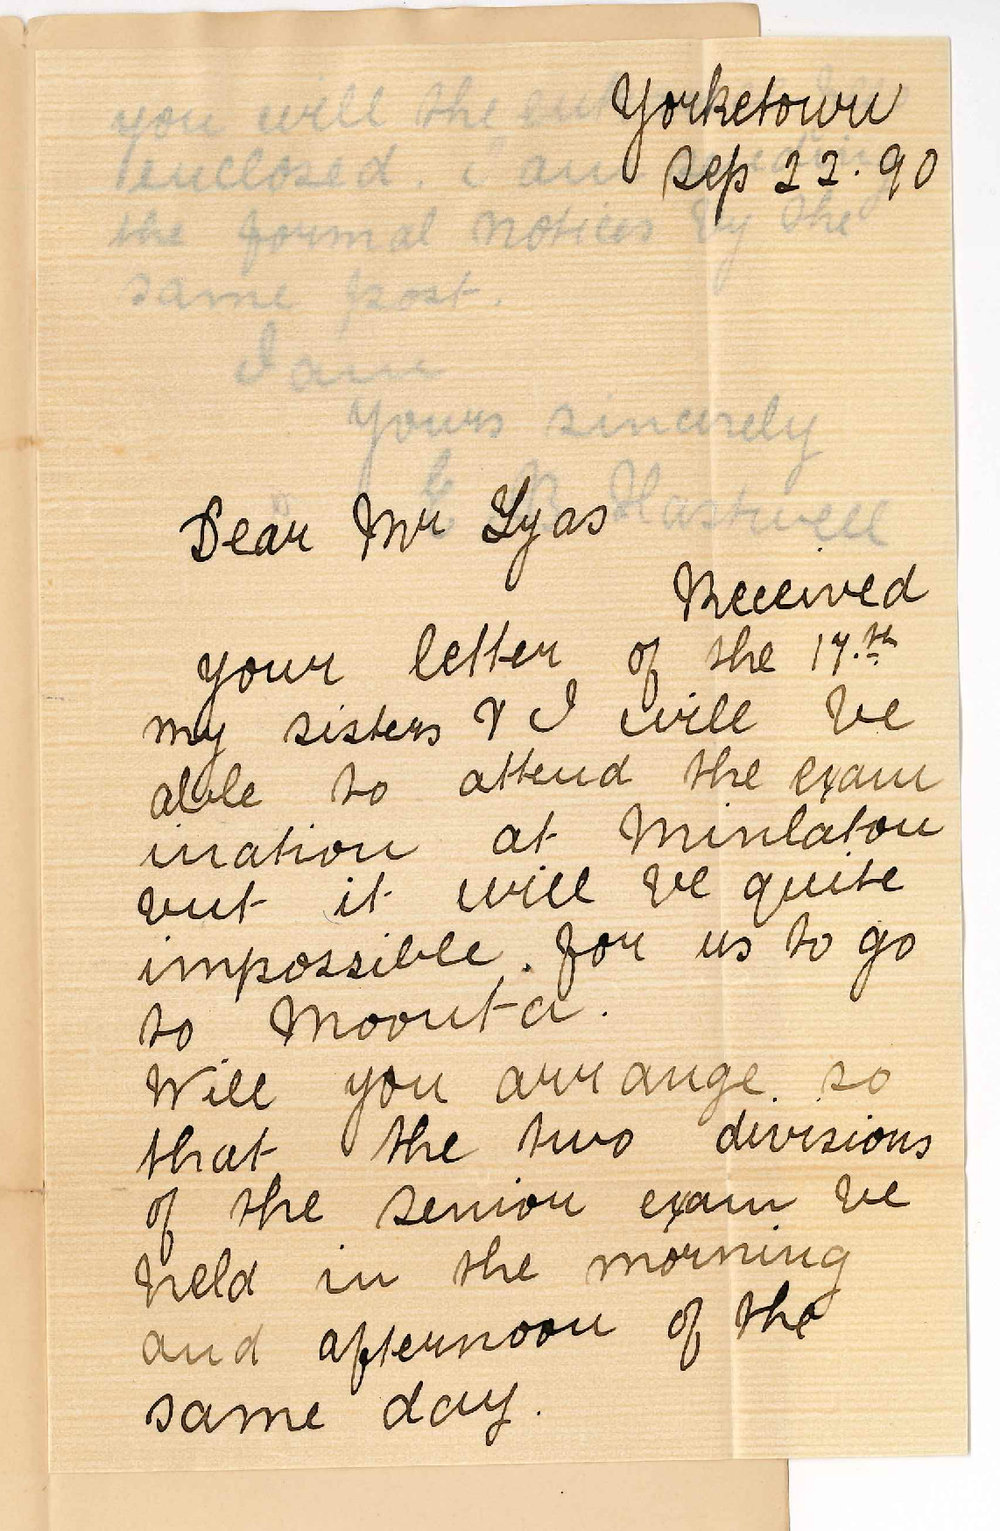 Yorketown
Sep 22. 90
you will the
enclosed. i am
the formal notices by the
same post.
I am
Yours sincerely
Hastwell
Dear Mr Lyas
Received
your letter of the 17.th
my sisters & I will be
able to attend the exam
ination at Minlaton
but it will be quite
impossible . for us to go
to Moonta.
Will you arrange so
that the two divisions
of the senior exam be
held in the morning
and afternoon of the
same day.